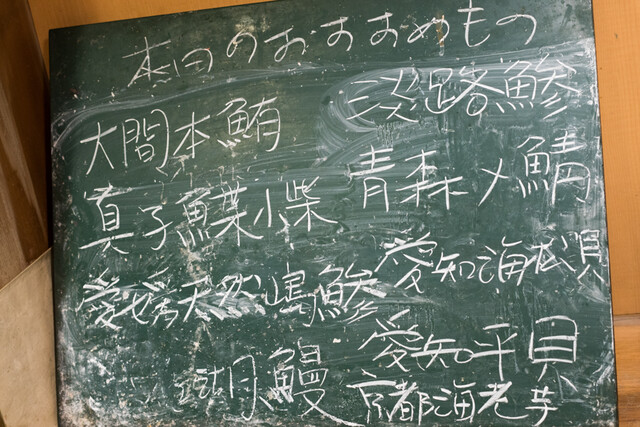 本日のおすすめもの
大間本鮪
真子鰈小柴
愛媛天然嶋鯵
鰻
淡路鯵
青森〆鯖
愛知海松貝
愛知平貝
京都海老芋